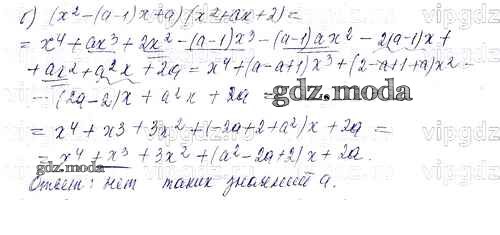 б) (x²-(a-1)x+a)(x²+ax+2)=
= x⁴+ax³+2x²-(a-1)x³-(a-1)ax²-2(a-1)x+
+ax²+a²x+2a = x⁴+(a-a+1)x³+(2-a+1+a)x²-
-(2a-2)x+a²x+2a =
gdz.moda
= x⁴+x3+3x²+(-2a+2+a²)x+2a =
= x⁴+x³+3x²+(a²-2a+2)x+2a.
gdz.moda
Ответ: нет таких значений a.